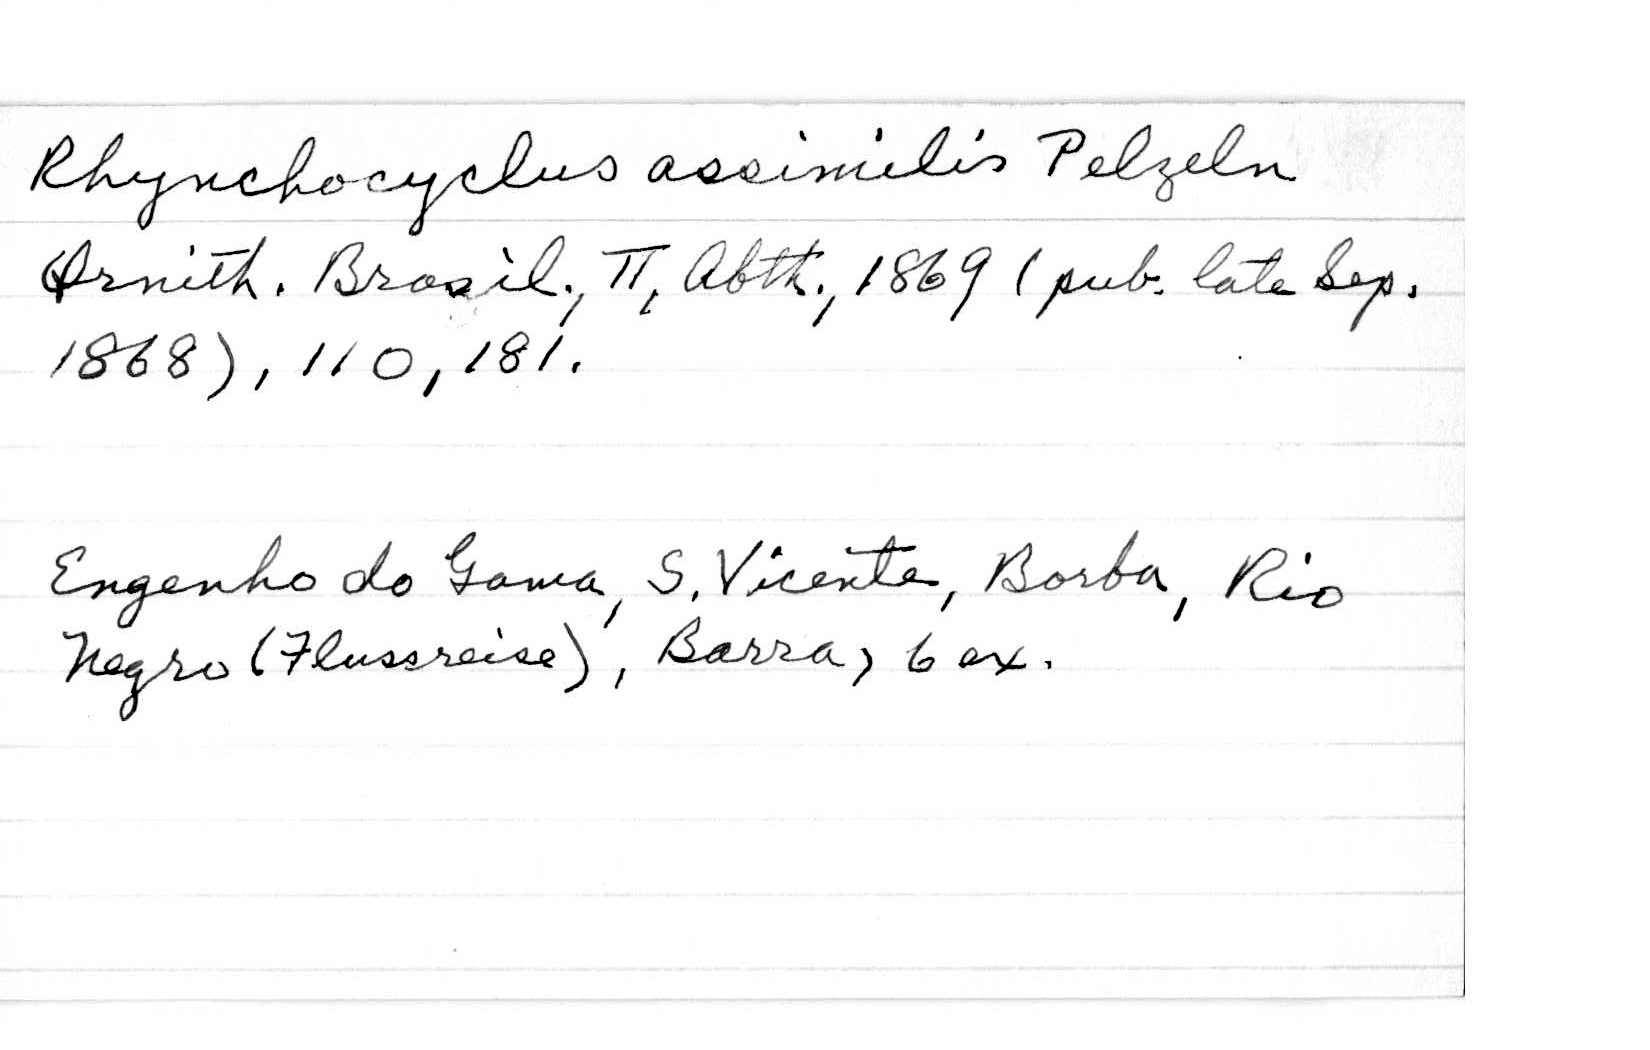 Rhynchocyclus assimilis Pelzeln
Ornith. Brasil., II, Abth., 1869 (pub. late Sep.
1868), 110, 181.
Engenho do Gama, S. Vicente, Borba, Rio
Negro (Flussreise), Barra, 6 ex.